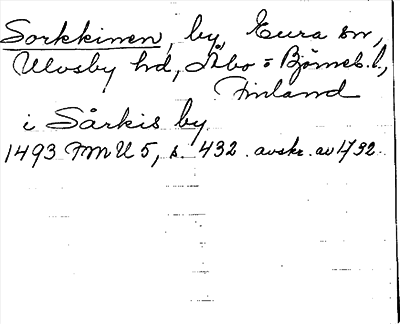 Sorkkinen, by, Eura sn,
Ulvsby hd, Åbo o Björneb. l.,
Finland
i Sårkis by
1493 FMU 5, s. 432. avskr. av 1792